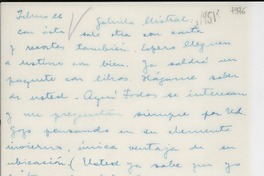 Febrero 26 Gabriela Mistral, 1951
4976
con ésta sale otra con carta
y recortes también. Espero lleguen
a destino con bien. Ya saldrá un
paquete con libros. Hágame saber
de usted. Aquí todos se interesan
y me preguntan siempre por Ud.
pensando en su clemente
invierno, única ventaja de su
ubicación (Usted ya sabe que yo